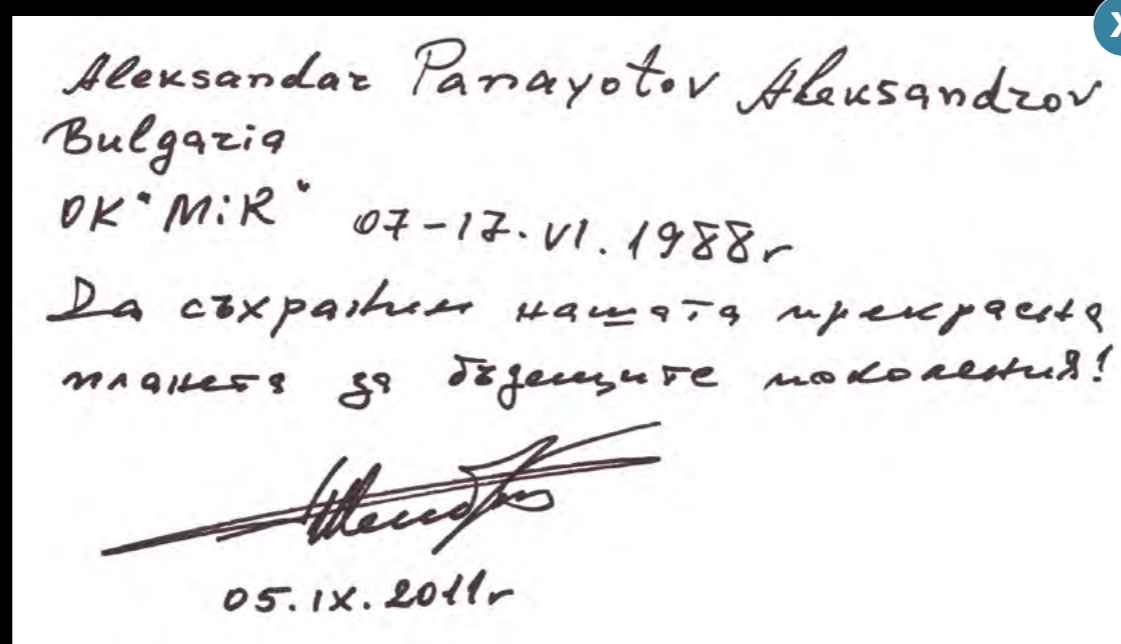 Aleksandar Panayotov Aleksandrov
Bulgaria
OK "MiR" 07-17.VI.1988г
Да съхраним нашата прекрасна
планета за бъдещите поколения!
05.IX.2011г